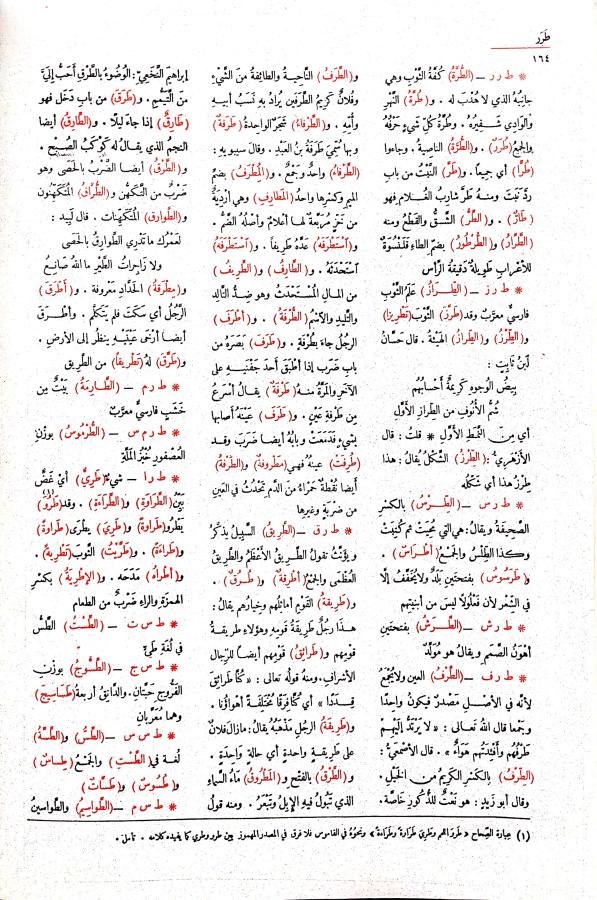 طَرَر
١٦٤
* ط ر ر – (الطُّرَّةُ) كُفَّةُ الثَّوْبِ وهي
جانِبُهُ الذي لا هُدْبَ له . و(طُرَّةُ) النَّهْرِ
والوَادِي شَفِيرُهُ . وطُرَّةُ كُلِّ شيءٍ حَرْفُهُ
والجمعُ (طُرَرٌ) . و(الطُّرَّةُ) الناصيةُ . وجاءوا
(طُرًّا) أي جميعًا . و(طَرَّ) النَّبْتُ من بابِ
رَدَّ نَبَتَ ومنهُ طَرَّ شاربُ الغُلامِ فهو
(طَارٌّ) . و(الطَّرُّ) الشَّقُّ والقَطْعُ ومنه
(الطَّرَّارُ) و(الطُّرْطُورُ) بضمِّ الطاءِ قَلَنْسُوَةٌ
للأَعْرابِ طَوِيلَةٌ دَقِيقَةُ الرأسِ
* ط ر ز – (الطِّرَازُ) عَلَمُ الثَّوْبِ
فارسيٌّ معرَّبٌ وقد (طَرَّزَ) الثَّوْبَ (تَطْرِيزًا)
و(الطِّرْزُ) و(الطِّرازُ) الهَيْئَةُ . قال حَسَّانُ
ابْنُ ثابِتٍ :
بِيضُ الوُجوهِ كَرِيمَةٌ أحسابُهُم
شُمُّ الأُنوفِ من الطِّرازِ الأوَّلِ
أي مِنَ النَّمَطِ الأوَّلِ * قلتُ : قال
الأزْهَرِيُّ : (الطِّرْزُ) الشَّكْلُ يُقالُ : هذا
طِرْزُ هذا أي شَكْلُه
* ط ر س – (الطِّرْسُ) بالكسْرِ
الصَّحِيفَةُ ويُقالُ : هي التي مُحِيَتْ ثم كُتِبَتْ
وكذا الطِّلْسُ والجمعُ (أطْراسٌ) .
و(طَرَسُوسُ) بفتحتَينِ بَلَدٌ ولا يُخَفَّفُ إلَّا
في الشِّعْرِ لأن فَعْلُولًا ليسَ من أبنِيتِهِم
* ط ر ش – (الطَّرَشُ) بفتحتَينِ
أهْوَنُ الصَّمَمِ ويقالُ هو مُوَلَّدٌ
* ط ر ف – (الطَّرْفُ) العينُ ولا يُجْمَعُ
لأنَّه في الأصْلِ مَصْدَرٌ فيكونُ واحدًا
وجمعًا قال اللهُ تعالى : « لا يَرْتَدُّ إلَيْهِمْ
طَرْفُهُمْ وأفْئِدَتُهُم هَوَاءٌ » . قال الأصْمَعِيُّ :
(الطِّرْفُ) بالكَسْرِ الكَرِيمُ من الخَيْلِ .
وقال أبو زيدٍ : هو نَعْتٌ للذُّكُورِ خاصَّةً .
و(الطَّرَفُ) النَّاحِيَةُ والطائِفَةُ مِنَ الشَّيْءِ
وفُلانٌ كَرِيمُ الطَّرَفَيْنِ يُرادُ بِهِ نَسَبُ أبيهِ
وأُمِّهِ . و(الطَّرْفاءُ) شَجَرٌ الواحِدةُ (طَرَفَةٌ)
وبها سُمِّيَ طَرَفَةُ بنُ العَبْدِ . وقال سيبويهِ :
(الطَّرْفاءُ) واحِدٌ وجَمْعٌ . و(المُطْرَفُ) بضمِّ
الميمِ وكسْرِها واحدُ (المَطارِفِ) وهي أرْدِيَةٌ
من خَزٍّ مُرَبَّعَةٌ لها أعْلامٌ وأصْلُهُ الضَّمُّ .
و(اسْتَطْرَفَهُ) عَدَّهُ طَرِيفًا . و(اسْتَطْرَفَهُ)
اسْتَحْدَثَهُ . و(الطَّارِفُ) و(الطَّرِيفُ)
من المالِ المُسْتَحْدَثُ وهو ضِدُّ التَّالِدِ
والتَّلِيدِ والاسْمُ (الطُّرْفَةُ) . و(أطْرَفَ)
الرَّجُلُ جاءَ بِطُرْفَةٍ . و(طَرَفَ) بَصَرَهُ من
بابِ ضَرَبَ إذا أطْبَقَ أحدَ جَفْنَيْهِ على
الآخَرِ والمرَّةُ منهُ (طَرْفَةٌ) يقالُ أسْرَعُ
من طَرْفَةِ عَيْنٍ . و(طَرَفَ) عَيْنَهُ أصابَها
بشيءٍ فَدَمَعَتْ وبابُهُ أيضا ضَرَبَ وقد
(طُرِفَتْ) عينُهُ فهي (مَطْرُوفَةٌ) و(الطَّرْفَةُ)
أيضا نُقْطَةٌ حَمْراءُ مِنَ الدَّمِ تَحْدُثُ في العَيْنِ
من ضَرْبَةٍ وغيرِها
* ط ر ق – (الطَّرِيقُ) السَّبِيلُ يذكَّرُ
ويؤنَّثُ تقولُ الطَّرِيقُ الأعْظَمُ والطَّرِيقُ
العُظْمَى والجمعُ (أطْرِقَةٌ) و(طُرُقٌ) .
و(طَرِيقَةُ) القَوْمِ أماثِلُهُم وخِيارُهُم يقالُ :
هذا رَجُلٌ طَرِيقَةُ قَومِهِ وهؤلاءِ طريقةُ
قومِهِم و(طَرائِقُ) قَوْمِهم أيضا للرِّجالِ
الأشْرافِ . ومنه قولُه تعالى : « كُنَّا طَرائِقَ
قِدَدًا » أي كُنَّا فِرَقًا مُخْتَلِفَةً أهواؤُنا .
و(طَرِيقَةُ) الرجُلِ مَذْهَبُهُ يقالُ : مازالَ فلانٌ
على طَرِيقَةٍ واحِدةٍ أي حالَةٍ واحِدَةٍ .
و(الطَّرْقُ) بالفَتْحِ و(المَطْرُوقُ) ماءُ السَّماءِ
الذي تَبُولُ فيهِ الإبِلُ وتَبْعَرُ . ومنه قولُ
إبراهيمَ النَّخَعِيِّ : الوُضُوءُ بالطَّرْقِ أحبُّ إليَّ
منَ التَّيَمُّمِ . و(طَرَقَ) من بابِ دَخَلَ فهو
(طارِقٌ) إذا جاءَ ليلًا . و(الطَّارِقُ) أيضا
النجمُ الذي يقالُ له كَوْكَبُ الصُّبْحِ .
و(الطَّرْقُ) أيضا الضَّرْبُ بالحَصَى وهو
ضَرْبٌ من التَّكَهُّنِ و(الطُّرَّاقُ) المُتَكَهِّنُونَ
و(الطَّوارِقُ) المُتَكَهِّناتُ . قال لَبِيدٌ :
لَعَمْرُكَ ما تَدْرِي الطَّوارِقُ بالحَصَى
ولا زاجِراتُ الطَّيْرِ ما اللهُ صانِعُ
و(مِطْرَقَةُ) الحَدَّادِ مَعْروفةٌ . و(أَطْرَقَ)
الرَّجُلُ أي سَكَتَ فلم يَتَكَلَّمْ . وأطْرَقَ
أيضا أرْخَى عَيْنَيْهِ يَنظُرُ إلى الأرضِ .
و(طَرَّقَ) لهُ (تَطْرِيقًا) من الطريقِ
* ط ر م – (الطَّارِمَةُ) بَيْتٌ مِن
خَشَبٍ فارسيٌّ معرَّبٌ
* ط ر م س – (الطُّرْمُوسُ) بوزْنِ
العُصْفورِ خُبْزُ المَلَّةِ
* ط ر ا – شيءٌ (طَرِيٌّ) أي غَضٌّ
بَيِّنُ (الطَّرَاوَةِ) و(الطَّرَاءَةِ) . وقد (طَرُوَ)
يَطْرُو (طَراوةً) و(طَرِيَ) يَطْرَى (طَراوةً)
و(طَراءَةً) . و(طَرَّيْتُ) الثَّوْبَ (تَطْرِيَةً) .
و(أطْراهُ) مَدَحَه . و(الإطْرِيَةُ) بكسْرِ
الهمزَةِ والراءِ ضَرْبٌ من الطعامِ
* ط س ت – (الطَّسْتُ) الطَّسُّ
في لُغَةِ طَيِّئٍ
* ط س ج – (الطَّسُّوجُ) بوزنِ
الفَرُّوجِ حَبَّتانِ . والدَّانِقُ أربعةُ (طَساسِيجَ)
وهما معرَّبانِ
* ط س س – (الطَّسُّ) و(الطَّسَّةُ)
لغة في (الطَّسْتِ) والجمعُ (طِساسٌ)
و(طُسُوسٌ) و(طَسَّاتٌ)
* ط س م – (الطَّواسِيمُ) والطَّواسِينُ
(١) عبارة الصِّحاح « طرو اللحم وطرى طراوة وطراءة » ونحوُهُ في القاموس فلا فرق في المصدر المهموز بين طرو وطرى كما يفيده كلامه . تأمل .